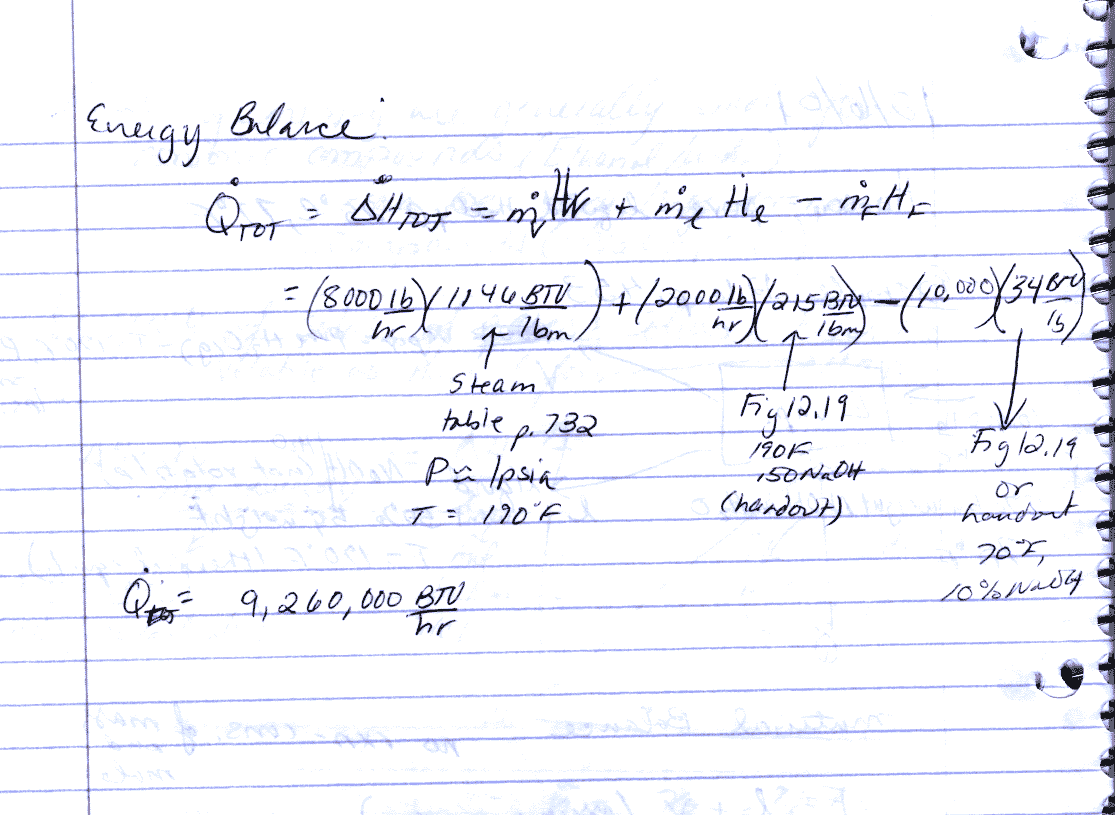 Energy Balance.
Q̇TOT = ΔḢTOT = ṁv Hv + ṁℓ Hℓ − ṁF HF
= (8000 lb/hr)(1146 BTU/lbm) + (2000 lb/hr)(215 BTU/lbm) − (10,000)(34 BTU/lb)
Steam
table p. 732
P ≈ 1psia
T = 190°F
Fig 12.19
190F
.50 NaOH
(handout)
Fig 12.19
or
handout
70°F,
10% NaOH
Q̇ = 9,260,000 BTU/hr